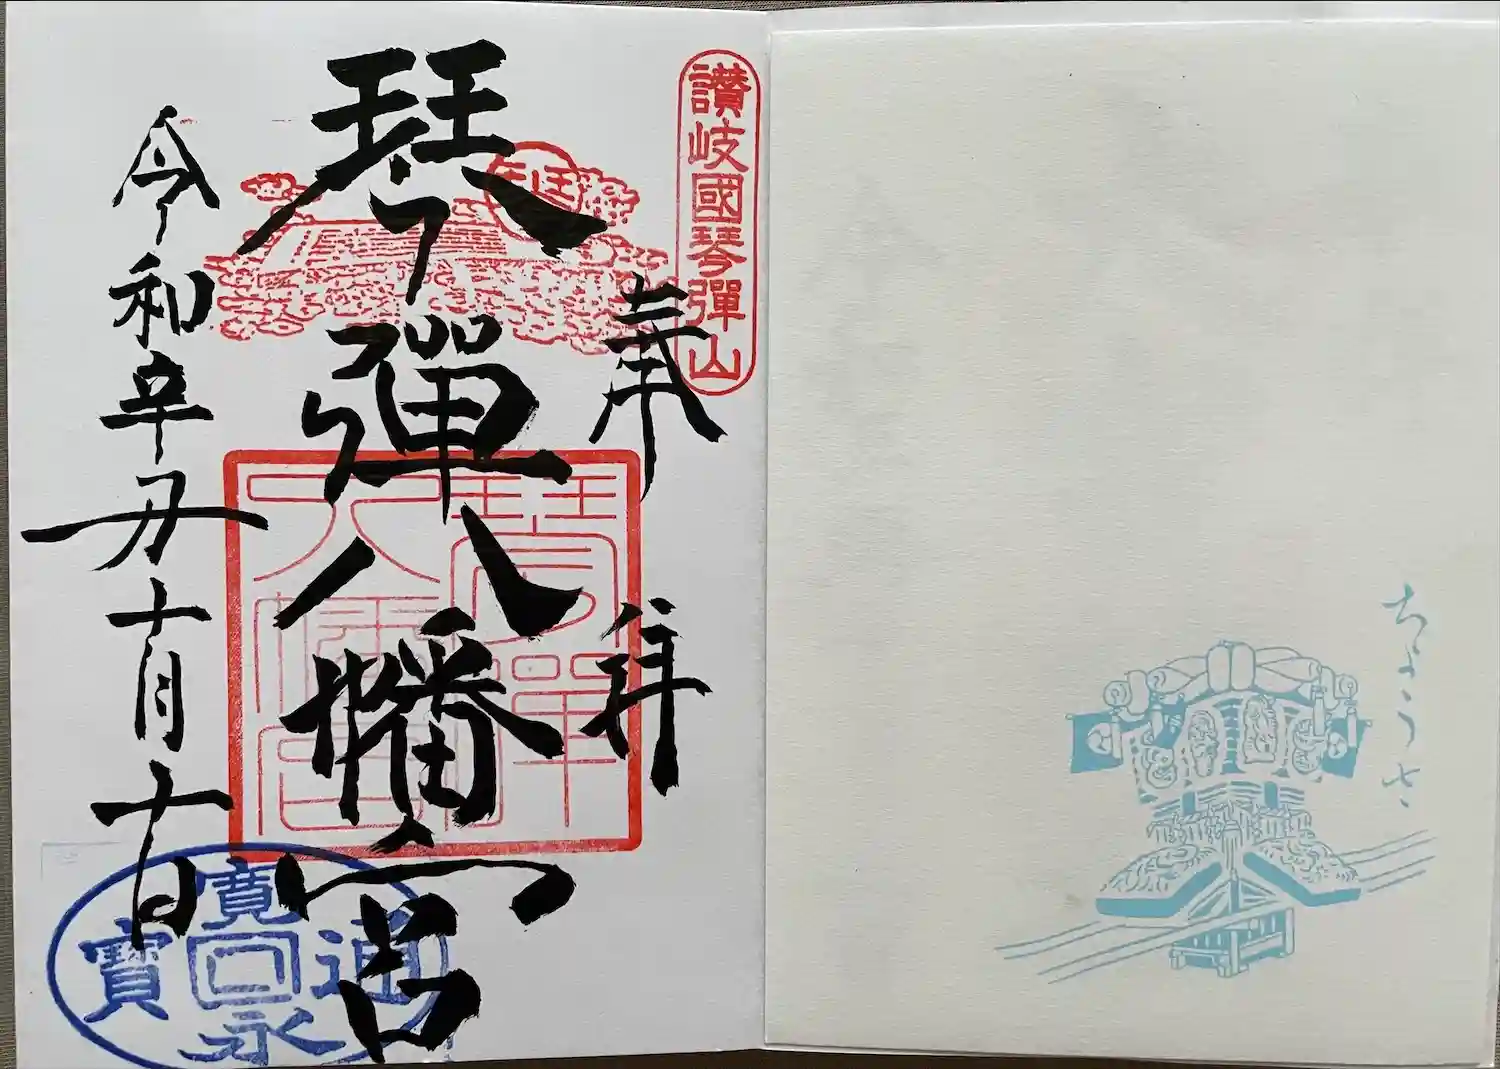 讃岐國琴彈山
奉拝
琴彈八幡宮
令和辛丑十月十日
琴彈
八幡宮
寛永通寳
ちょうさ